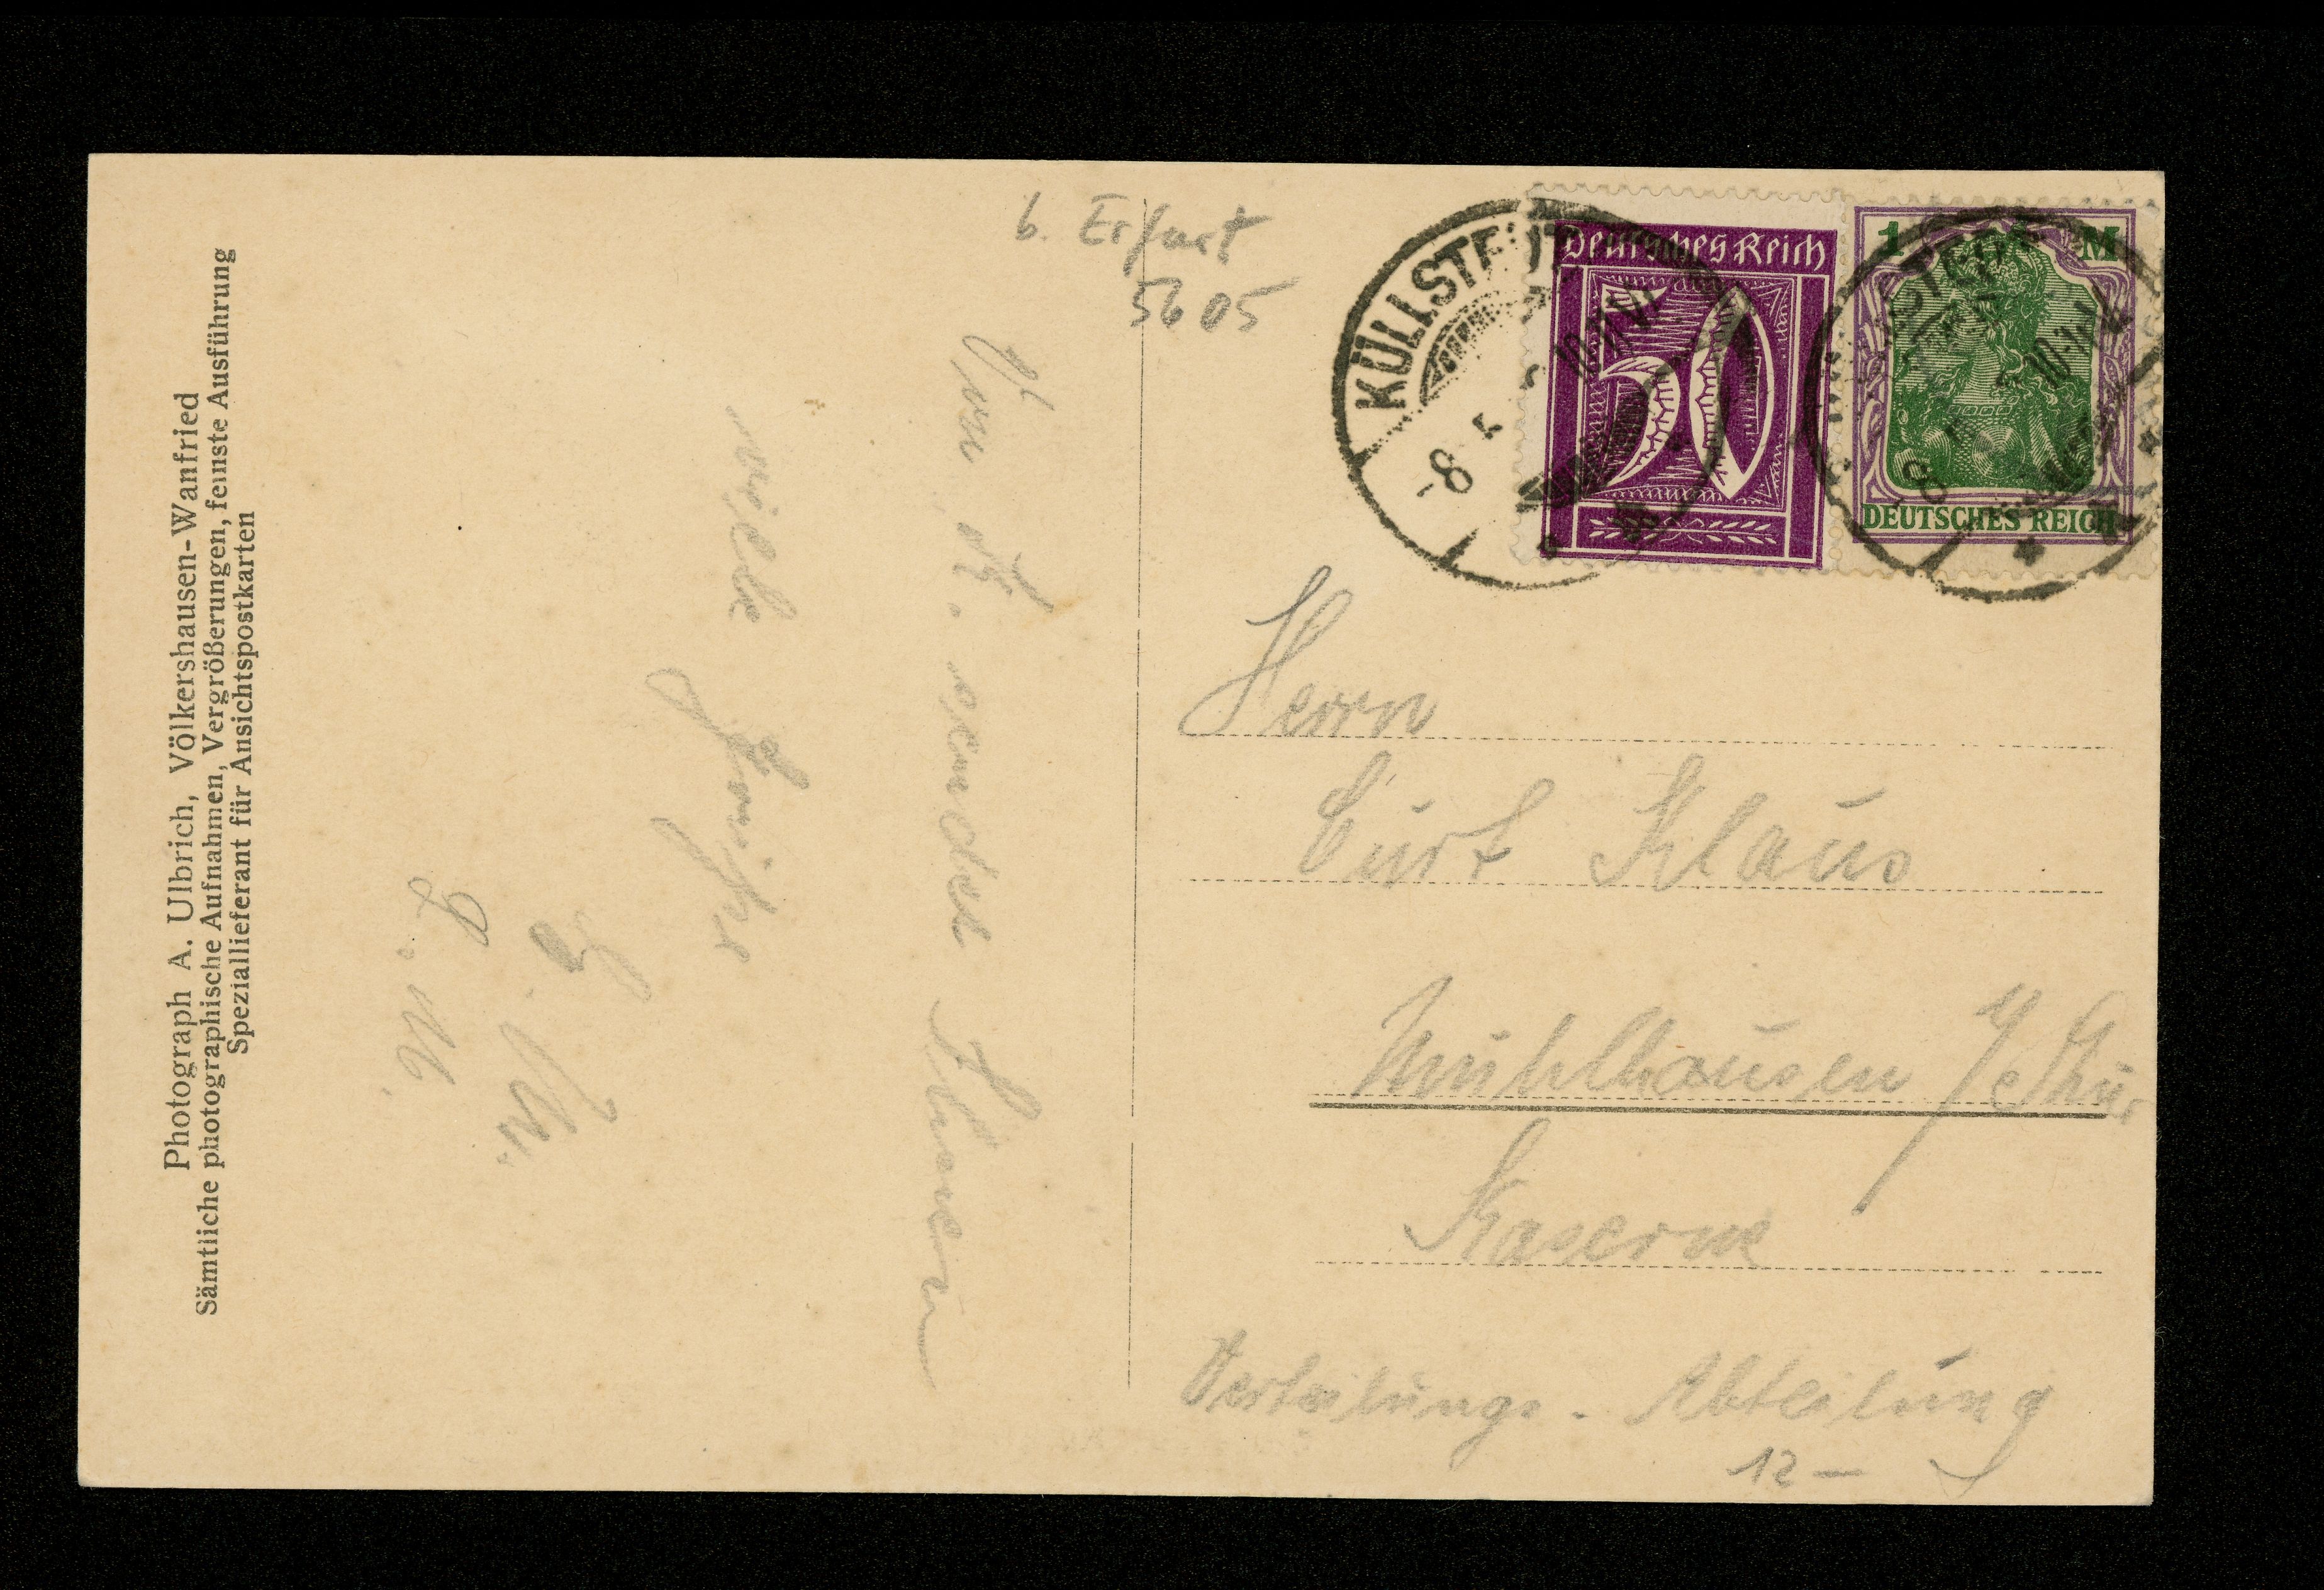 Photograph A. Ulbrich, Völkershausen-Wanfried
Sämtliche photographische Aufnahmen, Vergrößerungen, feinste Ausführung
Speziallieferant für Ansichtspostkarten
b. Erfurt
5605
KÜLLSTEDT
Deutsches Reich
50
1 M
DEUTSCHES REICH
Von sendet
viele
Herrn
Curt Klaus
Mühlhausen i/Thür.
Kaserne
Verteilungs-Abteilung
12 –